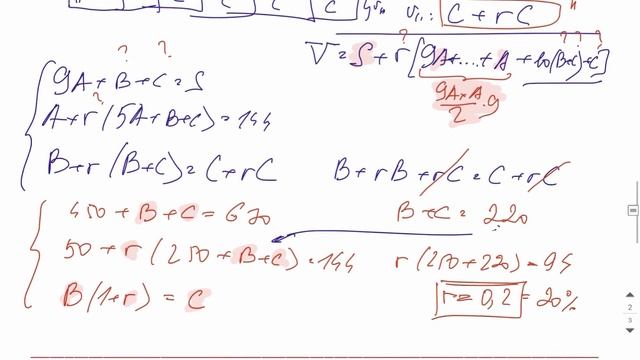 C C C
V₁₁: C + rC
V = S + r [9A + .... + A + 10(B+C) + C]
? ? ? ? ? ?
(9A + A)/2 · 9
9A + B + C = S
A + r (5A + B + C) = 144
?
B + r (B+C) = C + rC
B + rB + rC = C + rC
450 + B + C = 670
B + C = 220
50 + r (250 + B + C) = 144
r (250 + 220) = 94
B (1+r) = C
r = 0,2 = 20%
2
3